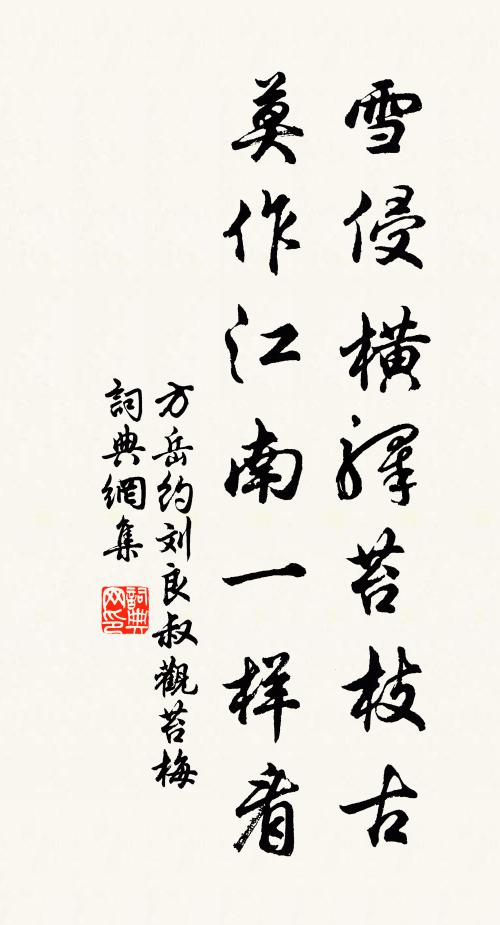 雪侵橫驛苔枝古
莫作江南一样看
方岳约刘良叔觀苔梅
詞典網集
詞典网印